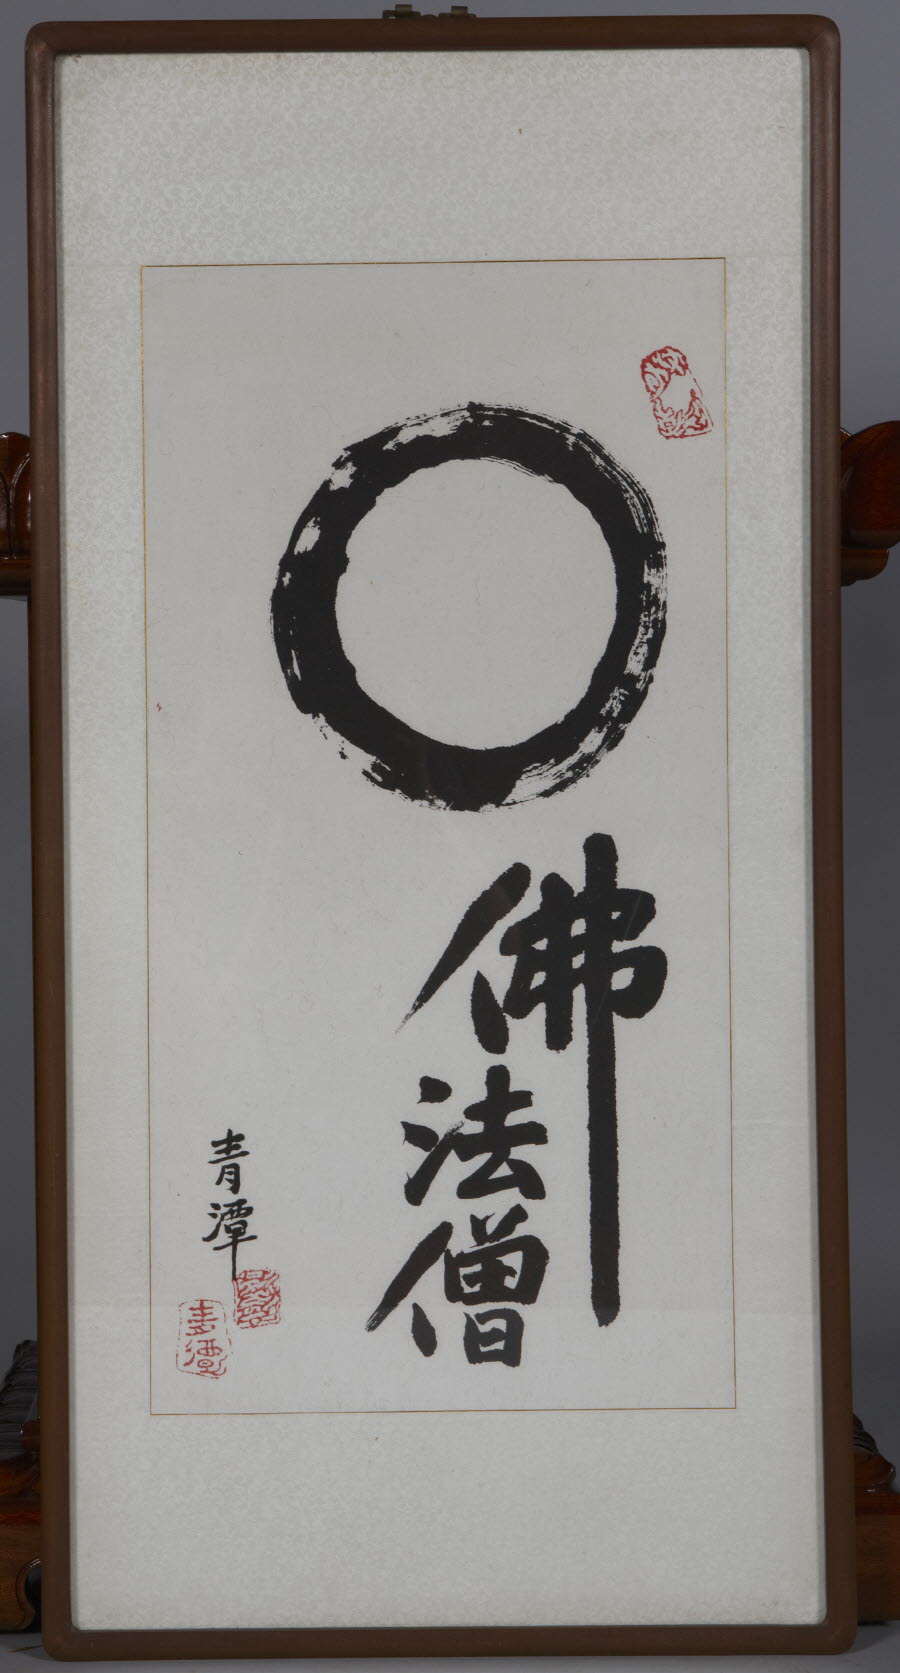 佛法僧
青潭
青潭